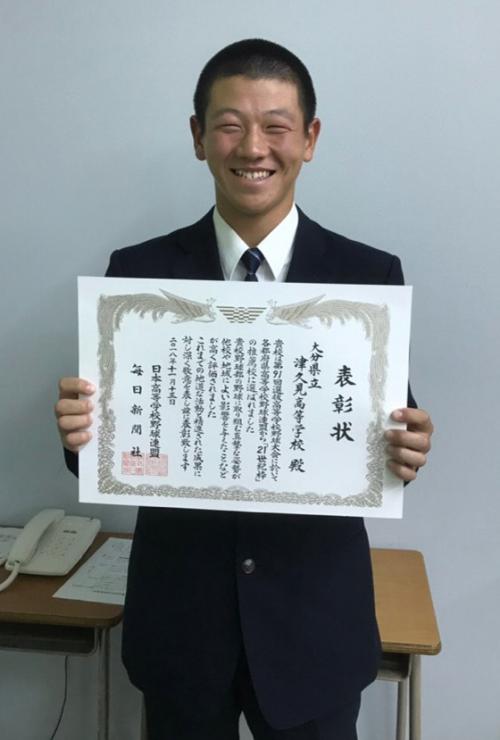 表彰状
大分県立
津久見高等学校 殿
貴校は第91回選抜高等学校野球大会に於いて
各都府県高等学校野球連盟から「21世紀枠」
の推薦校に選ばれました
貴校野球部の野球に取り組む真摯な姿勢が
他校や地域によい影響を与えたことなど
が高く評価されました
これまでの地道な活動と精進された成果に
対し深く敬意を表し茲に表彰致します
二〇一八年十一月十三日
日本高等学校野球連盟
毎日新聞社